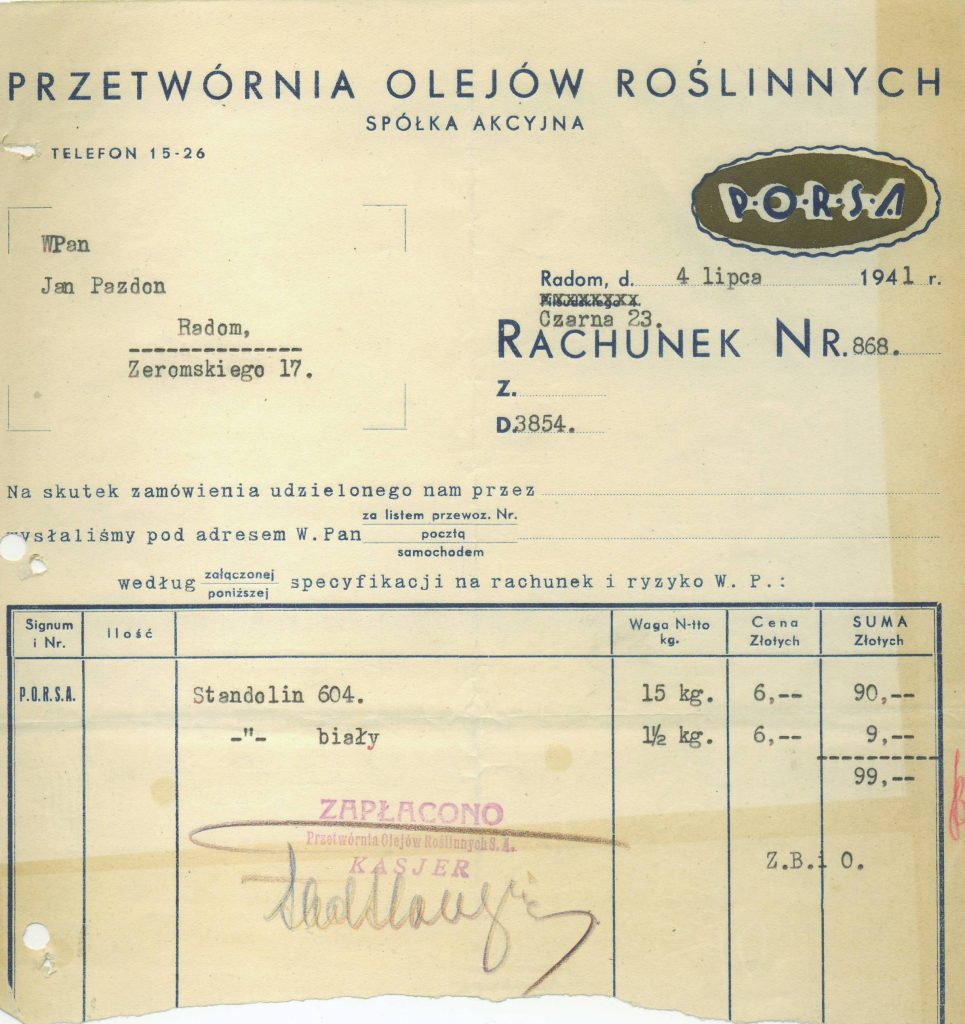 PRZETWÓRNIA OLEJÓW ROŚLINNYCH
SPÓŁKA AKCYJNA
TELEFON 15-26
P·O·R·S·A
WPan
Jan Pazdon
Radom,
Zeromskiego 17.
Radom, d. 4 lipca 1941 r.
Czarna 23.
RACHUNEK NR. 868.
Z.
D. 3854.
Na skutek zamówienia udzielonego nam przez
za listem przewoz. Nr.
wysłaliśmy pod adresem W. Pan pocztą
samochodem
według załączonej specyfikacji na rachunek i ryzyko W. P.:
poniższej
Signum i Nr. Ilość Waga N-tto kg. Cena Złotych SUMA Złotych
P.O.R.S.A. Standolin 604. 15 kg. 6,-- 90,--
-"- biały 1½ kg. 6,-- 9,--
99,--
ZAPŁACONO
Przetwórnia Olejów Roślinnych S. A.
KASJER
Z.B.i O.